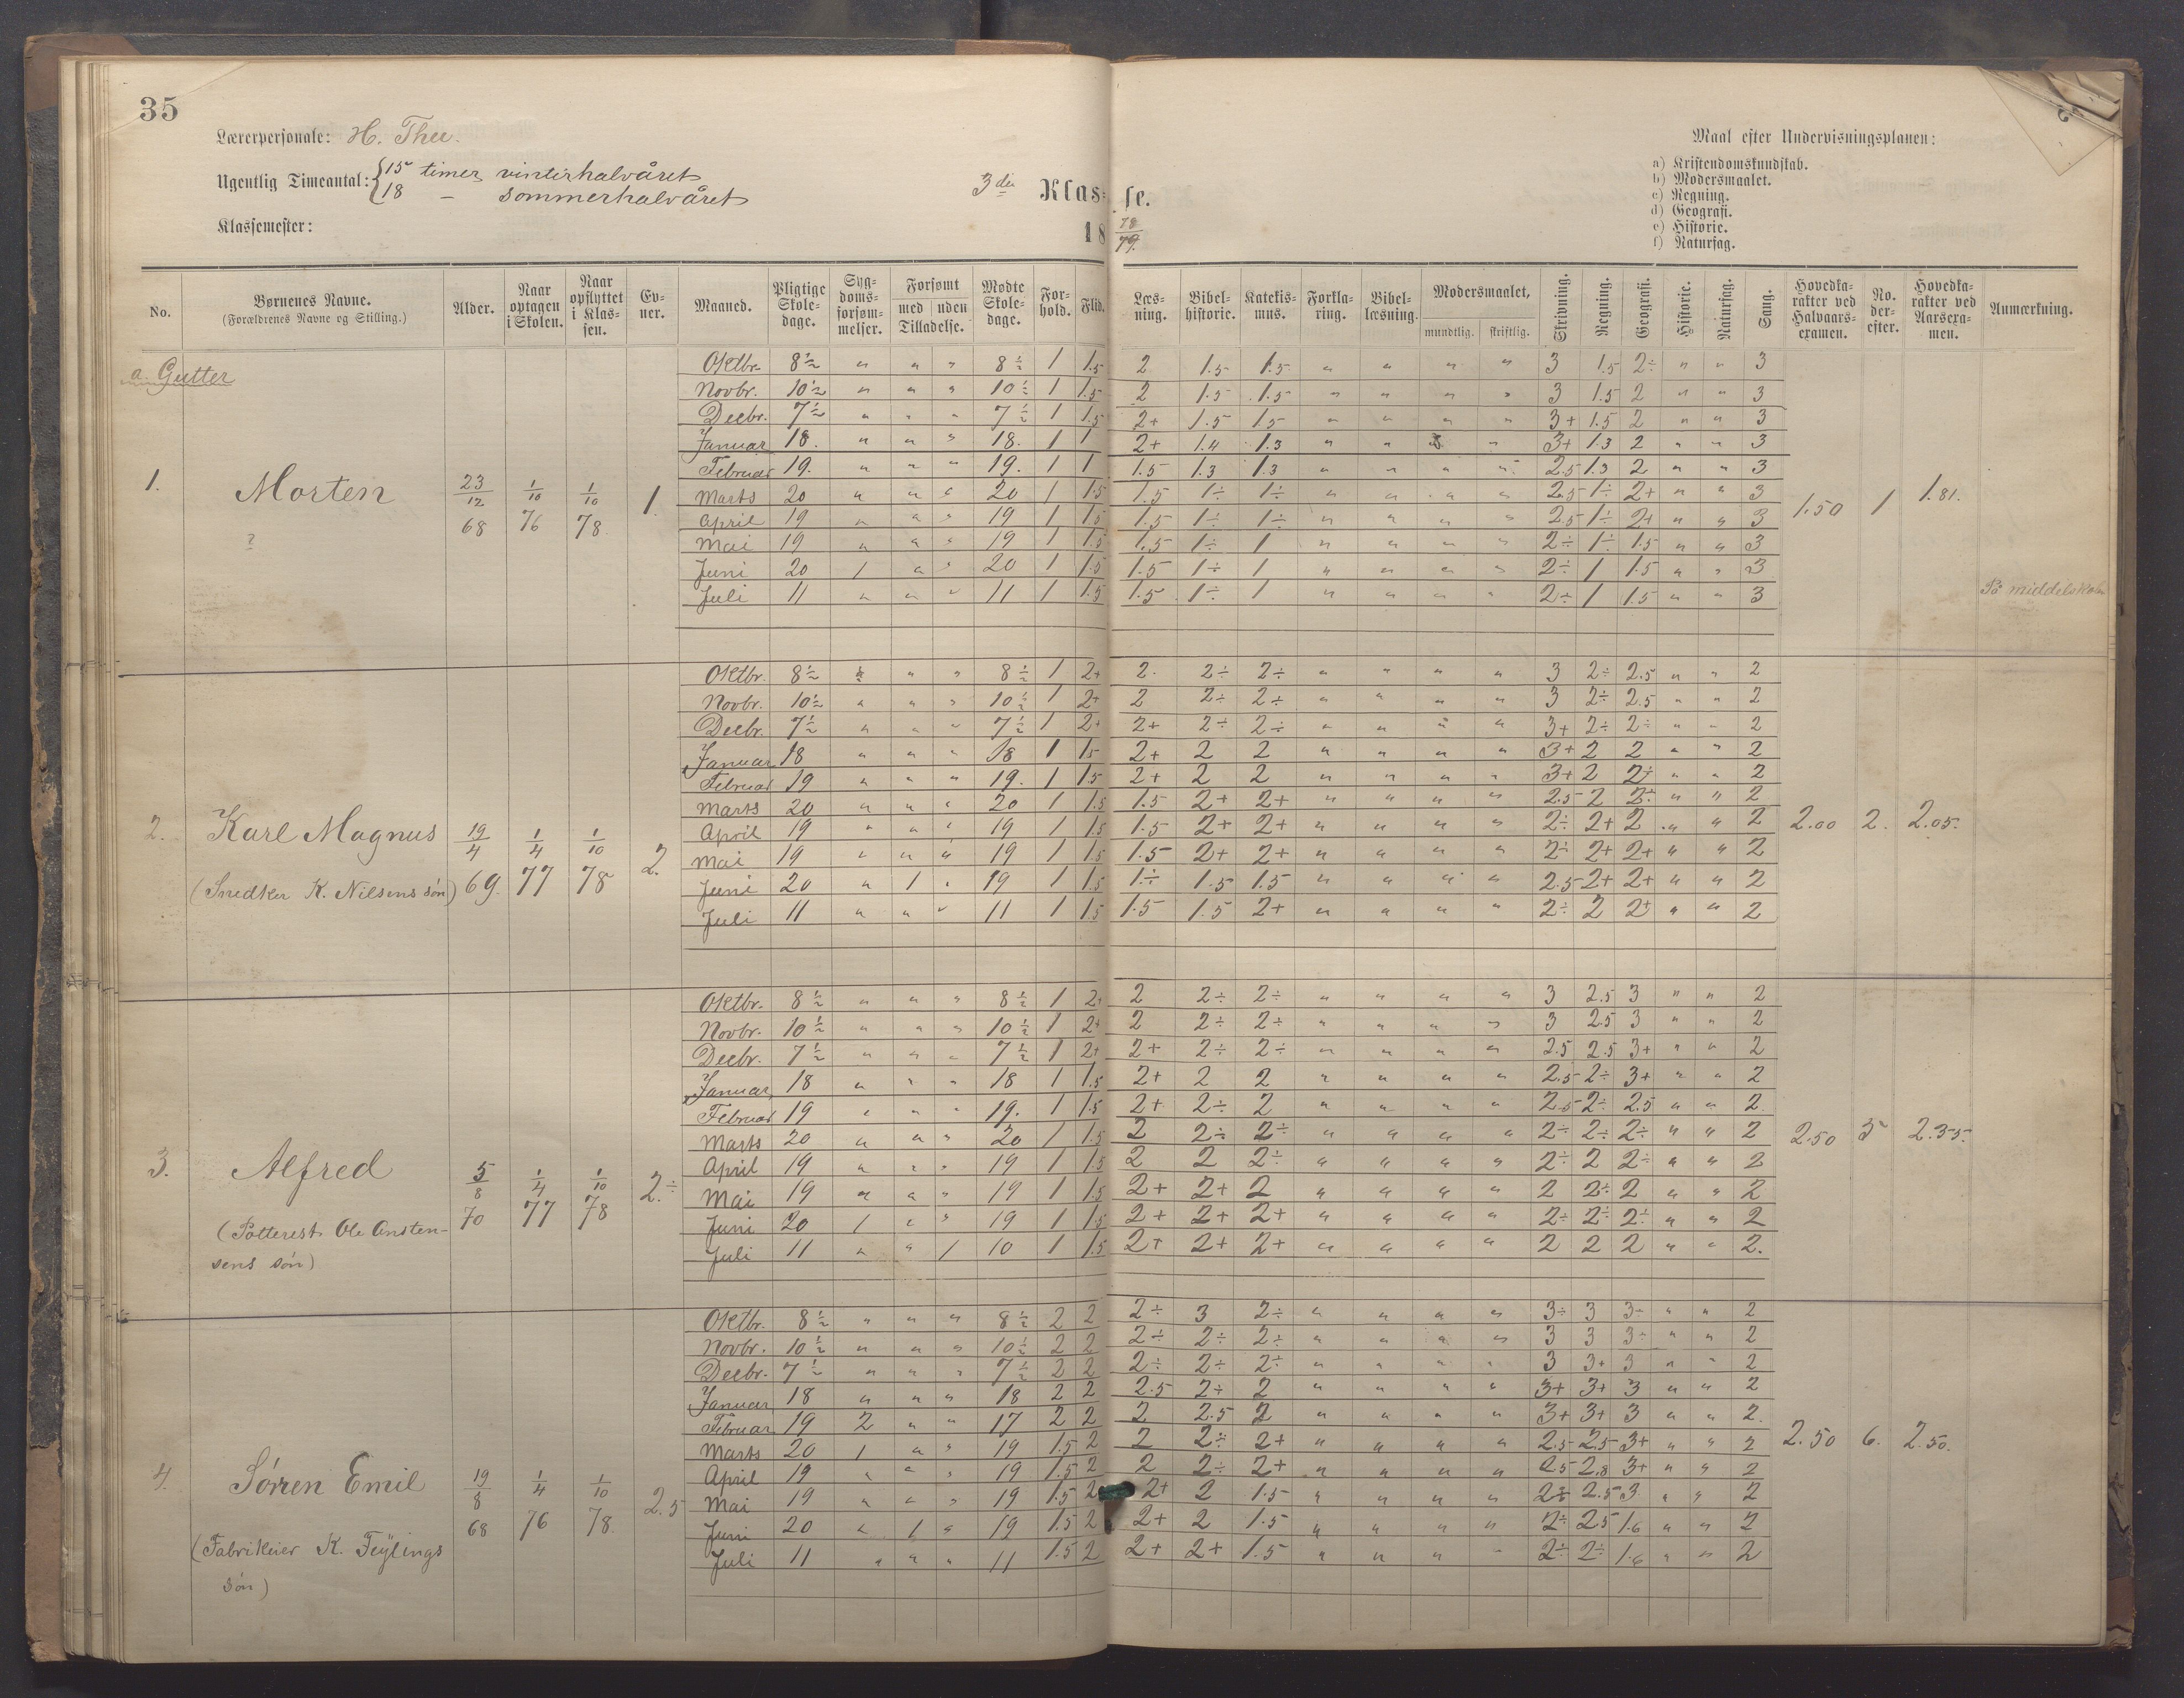 35
Lærerpersonale: H. Thu.
Ugentlig Timeantal: 15 timer vinterhalvåret
18 — sommerhalvåret
Klassemester:
3die Klasse.
18 78/79.
Maal efter Undervisningsplanen:
a) Kristendomskundskab.
b) Modersmaalet.
c) Regning.
d) Geografi.
e) Historie.
f) Naturfag.
No. Børnenes Navne. (Forældrenes Navne og Stilling.) Alder. Naar optagen i Skolen. Naar opflyttet i Klassen. Evner. Maaned. Pligtige Skoledage. Sygdomsforsømmelser. Forsømt med uden Tilladelse. Mødte Skoledage. Forhold. Flid. Læsning. Bibelhistorie. Katekismus. Forklaring. Bibellæsning. Modersmaalet, mundtlig. skriftlig. Skrivning. Regning. Geografi. Historie. Naturfag. Sang. Hovedkarakter ved Halvaarsexamen. No. derefter. Hovedkarakter ved Aarsexamen. Anmærkning.
a. Gutter
1. Morten 23/12 68 1/10 76 1/10 78. 1. 1.50 1 1.81.
?
På middelskolen
Oktbr. 8½ " " " 8½ 1 1.5 2 1.5 1.5 " " " " 3 1.5 2÷ " " 3
Novbr. 10½ " " " 10½ 1 1.5 2 1.5 1.5 " " " " 3 1.5 2 " " 3
Decbr. 7½ " " " 7½ 1 1.5 2+ 1.5 1.5 " " " " 3+ 1.5 2 " " 3
Januar 18. " " " 18. 1 1 2+ 1.4 1.3 " " " " 3+ 1.3 2 " " 3
Februar 19. " " " 19. 1 1 1.5 1.3 1.3 " " " " 2.5 1.3 2 " " 3
Marts 20 " " " 20 1 1.5 1.5 1÷ 1÷ " " " " 2.5 1÷ 2+ " " 3
April 19 " " " 19 1 1.5 1.5 1÷ 1÷ " " " " 2.5 1÷ 2+ " " 3
Mai 19 " " " 19 1 1.5 1.5 1÷ 1 " " " " 2÷ 1÷ 1.5 " " 3
Juni 20 1 " " 20 1 1.5 1.5 1÷ 1 " " " " 2÷ 1 1.5 " " 3
Juli 11 " " " 11 1 1.5 1.5 1÷ 1 " " " " 2÷ 1 1.5 " " 3
2. Karl Magnus 19/4 69. 1/4 77 1/10 78 2. 2.00 2. 2.05.
(Snedker K. Nilsens søn)
Oktbr. 8½ " " " 8½ 1 2+ 2. 2÷ 2÷ " " " " 3 2÷ 2.5 " " 2
Novbr. 10½ " " " 10½ 1 2+ 2 2÷ 2÷ " " " " 3 2÷ 2.5 " " 2
Decbr. 7½ " " " 7½ 1 2+ 2+ 2÷ 2÷ " " " " 3+ 2÷ 2÷ " " 2
Januar 18 " " " 18 1 1.5 2+ 2 2 " " " " 3+ 2 2 " " 2
Februar 19 " " " 19. 1 1.5 2+ 2 2 " " " " 3+ 2 2÷ " " 2
Marts 20 " " " 20 1 1.5 1.5 2+ 2+ " " " " 2.5 2 2÷ " " 2
April 19 " " " 19 1 1.5 1.5 2+ 2+ " " " " 2÷ 2+ 2 " " 2
Mai 19 " " " 19 1 1.5 1.5 2+ 2+ " " " " 2÷ 2+ 2+ " " 2
Juni 20 " 1 " 19 1 1.5 1.÷ 1.5 1.5 " " " " 2.5 2+ 2+ " " 2
Juli 11 " " " 11 1 1.5 1.5 1.5 2+ " " " " 2÷ 2 2+ " " 2
3. Alfred 5/8 70 1/4 77 1/10 78 2.÷ 2.50 5 2.35.
(Potterest. Ole Anstensens søn)
Oktbr. 8½ " " " 8½ 1 2+ 2 2÷ 2÷ " " " " 3 2.5 3 " " 2
Novbr. 10½ " " " 10½ 1 2+ 2 2÷ 2÷ " " " " 3 2.5 3 " " 2
Decbr. 7½ " " " 7½ 1 2+ 2+ 2÷ 2÷ " " " " 2.5 2.5 3+ " " 2
Januar 18 " " " 18 1 1.5 2+ 2 2 " " " " 2.5 2÷ 3+ " " 2
Februar 19 " " " 19. 1 1.5 2+ 2÷ 2 " " " " 2.5 2÷ 2.5 " " 2.
Marts 20 " " " 20 1 1.5 2 2÷ 2÷ " " " " 2÷ 2÷ 2÷ " " 2
April 19 " " " 19 1 1.5 2 2 2÷ " " " " 2÷ 2 2÷ " " 2
Mai 19 " " " 19 1 1.5 2+ 2+ 2 " " " " 2 2÷ 2 " " 2
Juni 20 1 " " 19 1 1.5 2+ 2+ 2+ " " " " 2÷ 2÷ 2÷ " " 2
Juli 11 " " 1 10 1 1.5 2+ 2+ 2+ " " " " 2 2 2 " " 2.
4. Sørren Emil 19/8 68 1/4 76 1/10 78. 2.5 2.50 6. 2.50.
(Fabrikeier K. Feÿlings søn)
Oktbr. 8½ " " " 8½ 2 2 2÷ 3 2÷ " " " " 3÷ 3 3÷ " " 2
Novbr. 10½ " " " 10½ 2 2 2÷ 2÷ 2÷ " " " " 3 3 3÷ " " 2
Decbr. 7½ " " " 7½ 2 2 2÷ 2÷ 2÷ " " " " 3 3+ 3 " " 2
Januar 18 " " " 18 2 2 2.5 2÷ 2 " " " " 3+ 3+ 3 " " 2
Februar 19 2 " " 17 2 2 2 2.5 2 " " " " 3+ 3+ 3 " " 2.
Marts 20 1 " " 19 1.5 2 2 2÷ 2+ " " " " 2.5 2.5 3+ " " 2
April 19 " " " 19 1.5 2 2 2÷ 2+ " " " " 2.5 2.8 3+ " " 2
Mai 19 " " " 19 1.5 2 2+ 2 1.5 " " " " 2÷ 2.5 3 " " 2
Juni 20 " 1 " 19 1.5 2 2+ 2 1.5 " " " " 2÷ 2.5 1.6 " " 2
Juli 11 " " " 11 1.5 2 2+ 2+ 1.5 " " " " 2÷ 2÷ 1.6 " " 2